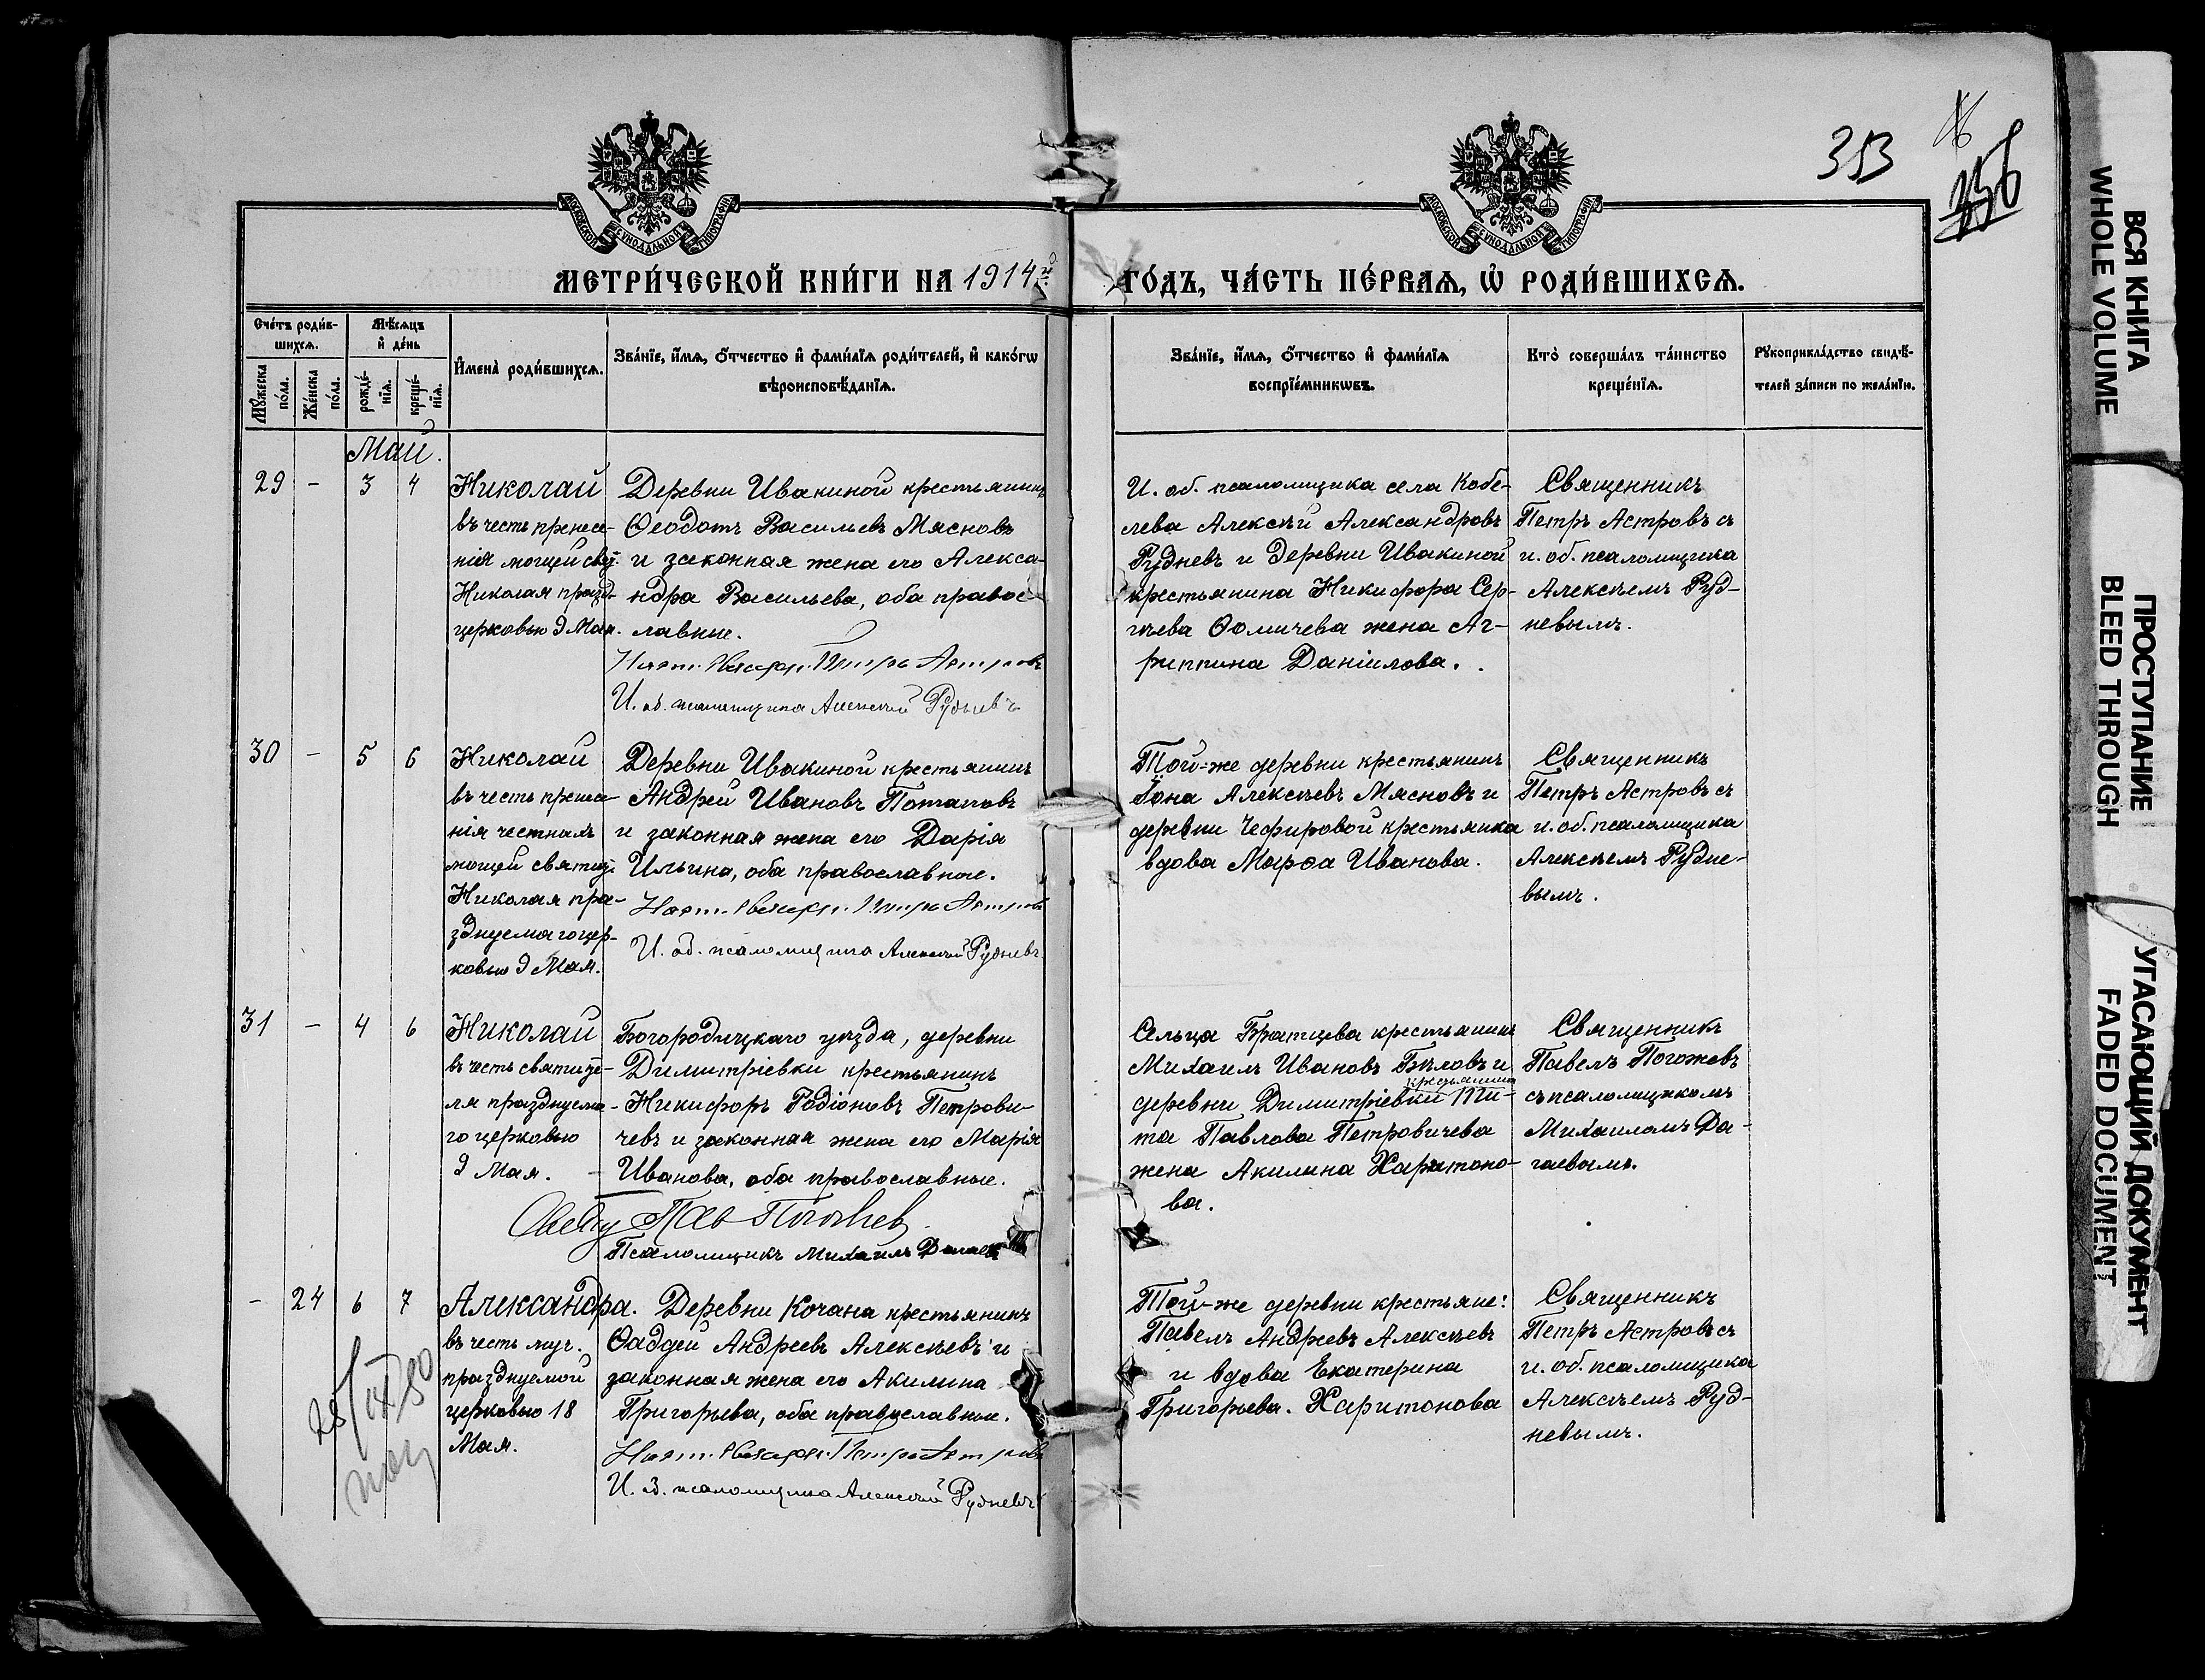 353
356
МОСКОВСКОЙ СѴНОДАЛЬНОЙ ТИПОГРАФІИ
МОСКОВСКОЙ СѴНОДАЛЬНОЙ ТИПОГРАФІИ
МЕТРИ́ЧЕСКОЙ КНИ́ГИ НА 1914й ГО́ДЪ, ЧА́СТЬ ПЕ́РВАѦ, Ѡ҆ РОДИ́ВШИХСѦ.
Сче́тъ роди́в-
шихсѧ.
Мꙋ́жеска по́ла.
Же́нска по́ла.
Мѣ́сѧцъ
и҆ де́нь
рожде́-
нїѧ.
креще́-
нїѧ.
И҆мена̀ роди́вшихсѧ.
Зва́нїе, и҆́мѧ, о҆́тчество и҆ фами́лїѧ роди́телей, и҆ како́гѡ
вѣроисповѣ́данїѧ.
Зва́нїе, и҆́мѧ, о҆́тчество и҆ фами́лїѧ
воспрїе́мникѡвъ.
Кто̀ соверша́лъ та́инство
креще́нїѧ.
Рꙋкоприкла́дство свидѣ́-
телей за́писи по жела́нїю.
Май.
29 - 3 4
Николай
въ честь пренесе-
нія мощей свят.
Николая празд.
церковью 9 Мая.
Деревни Ивакиной крестьянинъ
Ѳеодотъ Васильевъ Мясновъ
и законная жена его Алекса-
ндра Васильева, оба правос-
лавные.
Наст. Священ. Петръ Астровъ
И. об. псаломщика Алексѣй Рудневъ
И. об. псаломщика села Кобе-
лева Алексѣй Александровъ
Рудневъ и деревни Ивакиной
крестьянина Никифора Сер-
гѣева Ѳомичева жена Аг-
риппина Даніилова.
Священникъ
Петръ Астровъ съ
и. об. псаломщика
Алексѣемъ Руд-
невымъ.
30 - 5 6
Николай
въ честь пренесе-
нія честныхъ
мощей святит.
Николая пра-
зднуемаго цер-
ковью 9 Мая.
Деревни Ивакиной крестьянинъ
Андрей Ивановъ Потаповъ
и законная жена его Дарія
Ильина, оба православные.
Наст. Священ. Петръ Астровъ
И. об. псаломщика Алексѣй Рудневъ
Той-же деревни крестьянинъ
Іона Алексѣевъ Мясновъ и
деревни Чефировой крестьянка
вдова Марѳа Иванова.
Священникъ
Петръ Астровъ съ
и. об. псаломщика
Алексѣемъ Рудне-
вымъ.
31 - 4 6
Николай
въ честь святите-
ля празднуема-
го церковью
9 Мая.
Богородицкаго уѣзда, деревни
Димитріевки крестьянинъ
Никифоръ Родіоновъ Петрови-
чевъ и законная жена его Марія
Иванова, оба православные.
Псаломщикъ Михаилъ
Сельца Братцева крестьянинъ
Михаилъ Ивановъ Бѣловъ и
деревни Димитріевки крестьянина Ти-
та Павлова Петровичева
жена Акилина Харитоно-
ва.
Священникъ
Павелъ Погожевъ
съ псаломщикомъ
Михаиломъ Да-
гаевымъ.
- 24 6 7
Александра.
въ честь муч.
празднуемой
церковью 18
Мая.
Деревни Кочана крестьянинъ
Ѳаддей Андреевъ Алексѣевъ и
законная жена его Акилина
Григорьева, оба православные.
Наст. Священ. Петръ Астровъ
И. об. псаломщика Алексѣй Рудневъ
Той-же деревни крестьяне:
Павелъ Андреевъ Алексѣевъ
и вдова Екатерина
Григорьева. Харитонова
Священникъ
Петръ Астровъ съ
и. об. псаломщика
Алексѣемъ Руд-
невымъ.
ВСЯ КНИГА
WHOLE VOLUME
ПРОСТУПАНИЕ
BLEED THROUGH
УГАСАЮЩИЙ ДОКУМЕНТ
FADED DOCUMENT